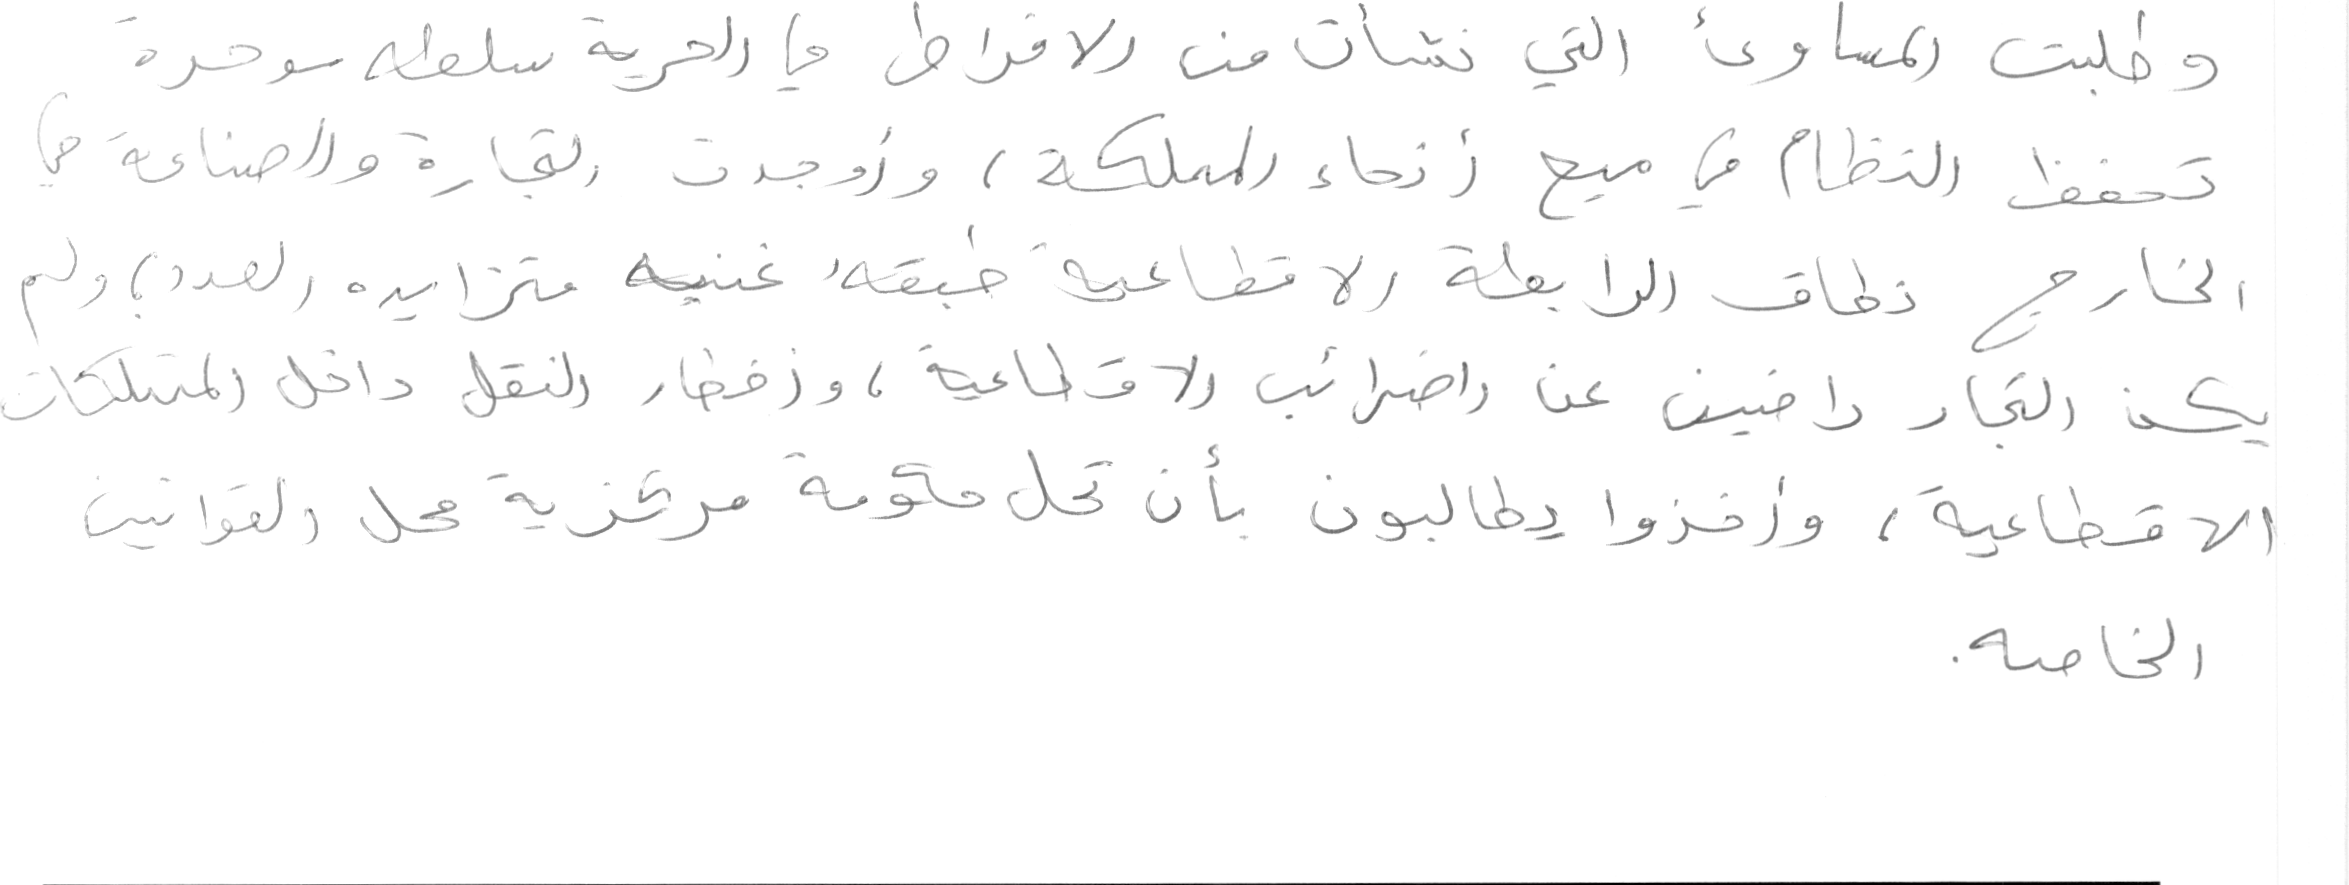 وطلبت المساوئ التي نشأت من الافراط في الحرية سلطه موحدة
تحفظ النظام في ميع أنحاء المملكة، وأوجدت التجارة والصناعة في
الخارج نطاق الرابطة الاقطاعية طبقه غنيه متزايده العدد، ولم
يكن التجار راضين عن راضرائب الاقطاعية، وأخطار النقل داخل الممتلكات
الاقطاعية، وأخذوا يطالبون بأن تحل حكومة مركزية محل القوانين
الخاصه.